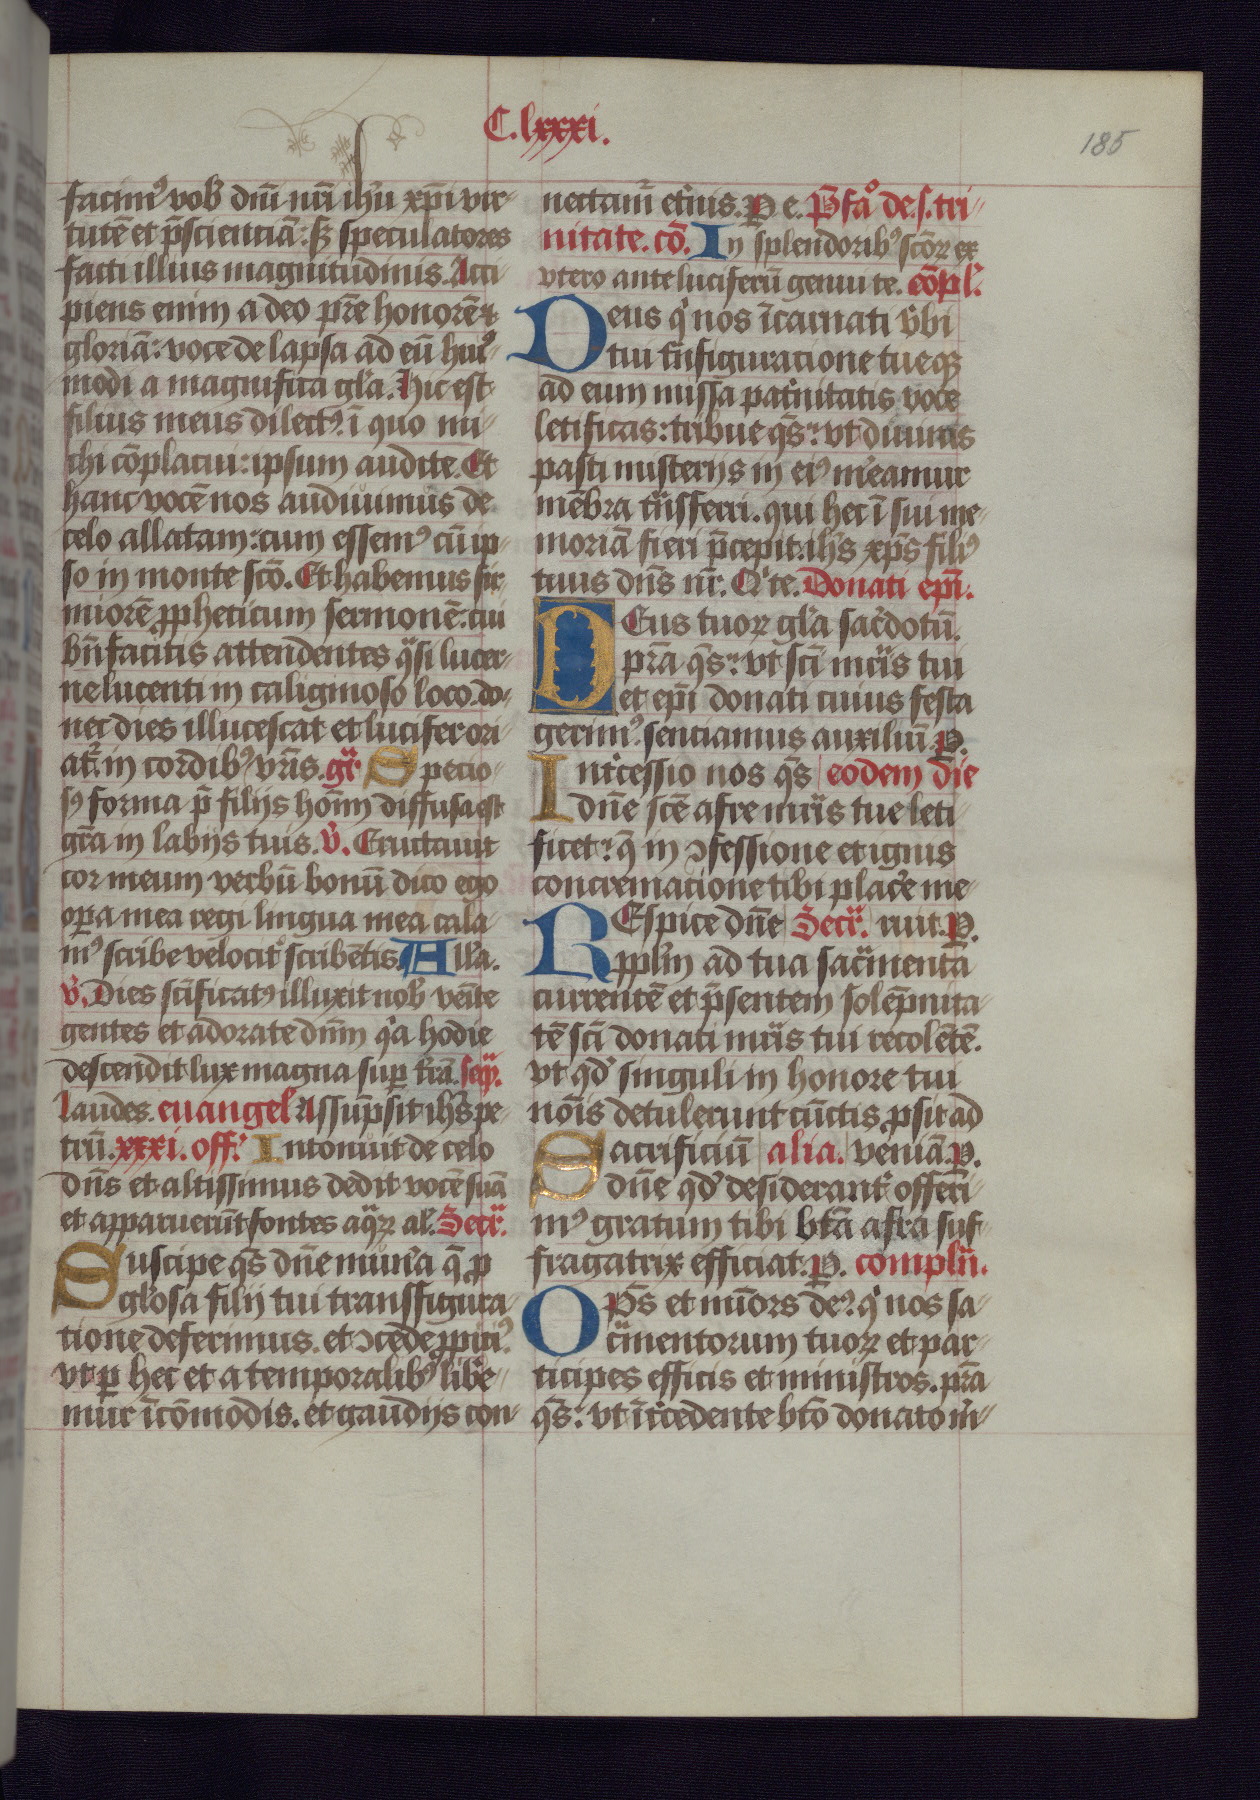 C. lxxxi.
185
facim⁹ vob̃ dñi nr̃i ih̾u xp̃i vir-
tutẽ et p̃scienciã: sꝫ speculatores
facti illius magnitudinis. Acci-
piens enim a deo pr̃e honorẽ ⁊
gloriã: voce delapsa ad eũ hui⁹-
modi a magnifica gl̾a. Hic est
filius meus dilect⁹: ĩ quo mi-
chi cõplacui: ipsum audite. Et
hanc vocẽ nos audiuimus de
celo allatam: cum essem⁹ cũ ip-
so in monte sc̃o. Et habemus fir-
miorẽ ꝓpheticum sermonẽ: cui
bñfacitis attendentes q̾si lucer-
ne lucenti in caliginoso loco. do-
nec dies illucescat et lucifer ori-
at̾ in cordib⁹ vr̃is. gr̾ Specio-
s⁹ forma p̃ filijs hoĩm diffusa est
gr̃a in labijs tuis. v̾. Eructauit
cor meum verbũ bonũ dico ego
oꝑa mea regi lingua mea cala-
m⁹ scribe velocit̾ scribẽtis. All̾a.
v̾. Dies sc̃ificat⁹ illuxit nob̾ veĩte
gentes et adorate dñm q̾a hodie
descendit lux magna suꝑ t̾rã. seq̾.
laudes. euangel̾ Assũpsit ih̾s pe-
trũ. xxxi. off̾. Intonuit de celo
dñs et altissimus dedit vocẽ suã
et apparuerũt fontes aq̾ꝝ al̾. Secr̾.
Suscipe q̃s dñe mun̾a q̃ ꝓ
gl̾osa filij tui transfigura-
tione deferimus. et ↄcede ꝓpiti⁹:
vt ꝑ hec et a temporalib⁹ libe-
mur ĩcõmodis. et gaudijs con-
nectam̾ et̾nis. P e. P̃fa͛o de. s. tri-
nitate. cõ. In splendorib⁹ sc̃oꝝ ex
vtero ante luciferũ genui te. cõpl̾.
Deus q̾ nos ĩcarnati v̾bi
tui tñsfiguratione tueqꝫ
ad eum missa pat̾nitatis voce
letificas: tribue q̃s: vt diuinis
pasti misterijs in ei⁹ m̾eamur
mẽbra tñsferri. qui hec ĩ sui me-
moriã fieri p̃cepit: ih̾s xp̃s fili⁹
tuus dñs nr̃. Q̾ te. Donati ep̃i.
DEus tuoꝝ gl̾a sac̾dotũ.
pr̃a q̃s: vt sc̃i mr̾is tui
et ep̃i donati cuius festa
gerim⁹: senciamus auxiliũ. P.
Int̾cessio nos q̃s eodem die
dñe sc̃e afre mr̾is tue leti-
ficet: q̃ in ↄfessione et ignis
concrematione tibi plac̾e me-
REspice dñe Secr̾. ruit. P.
ppl̾m ad tua sac̾menta
currentẽ et p̃sentem solẽpnita-
tẽ sc̃i donati mr̾is tui recolẽtẽ.
vt qd̾ singuli in honore tui
noĩs detulerunt cũctis ꝓsit ad
Sacrificiũ alia. veniã. P.
dñe qd̾ desiderant̾ offeri-
m⁹ gratum tibi bt̃a afra suf-
fragatrix efficiat. P. complñ.
OP̃s et mĩors de⁹: q̾ nos sa-
c̾mentorum tuoꝝ et par-
ticipes efficis et ministros. pr̃a
q̃s: vt ĩt̾cedente bt̃o donato m̾-